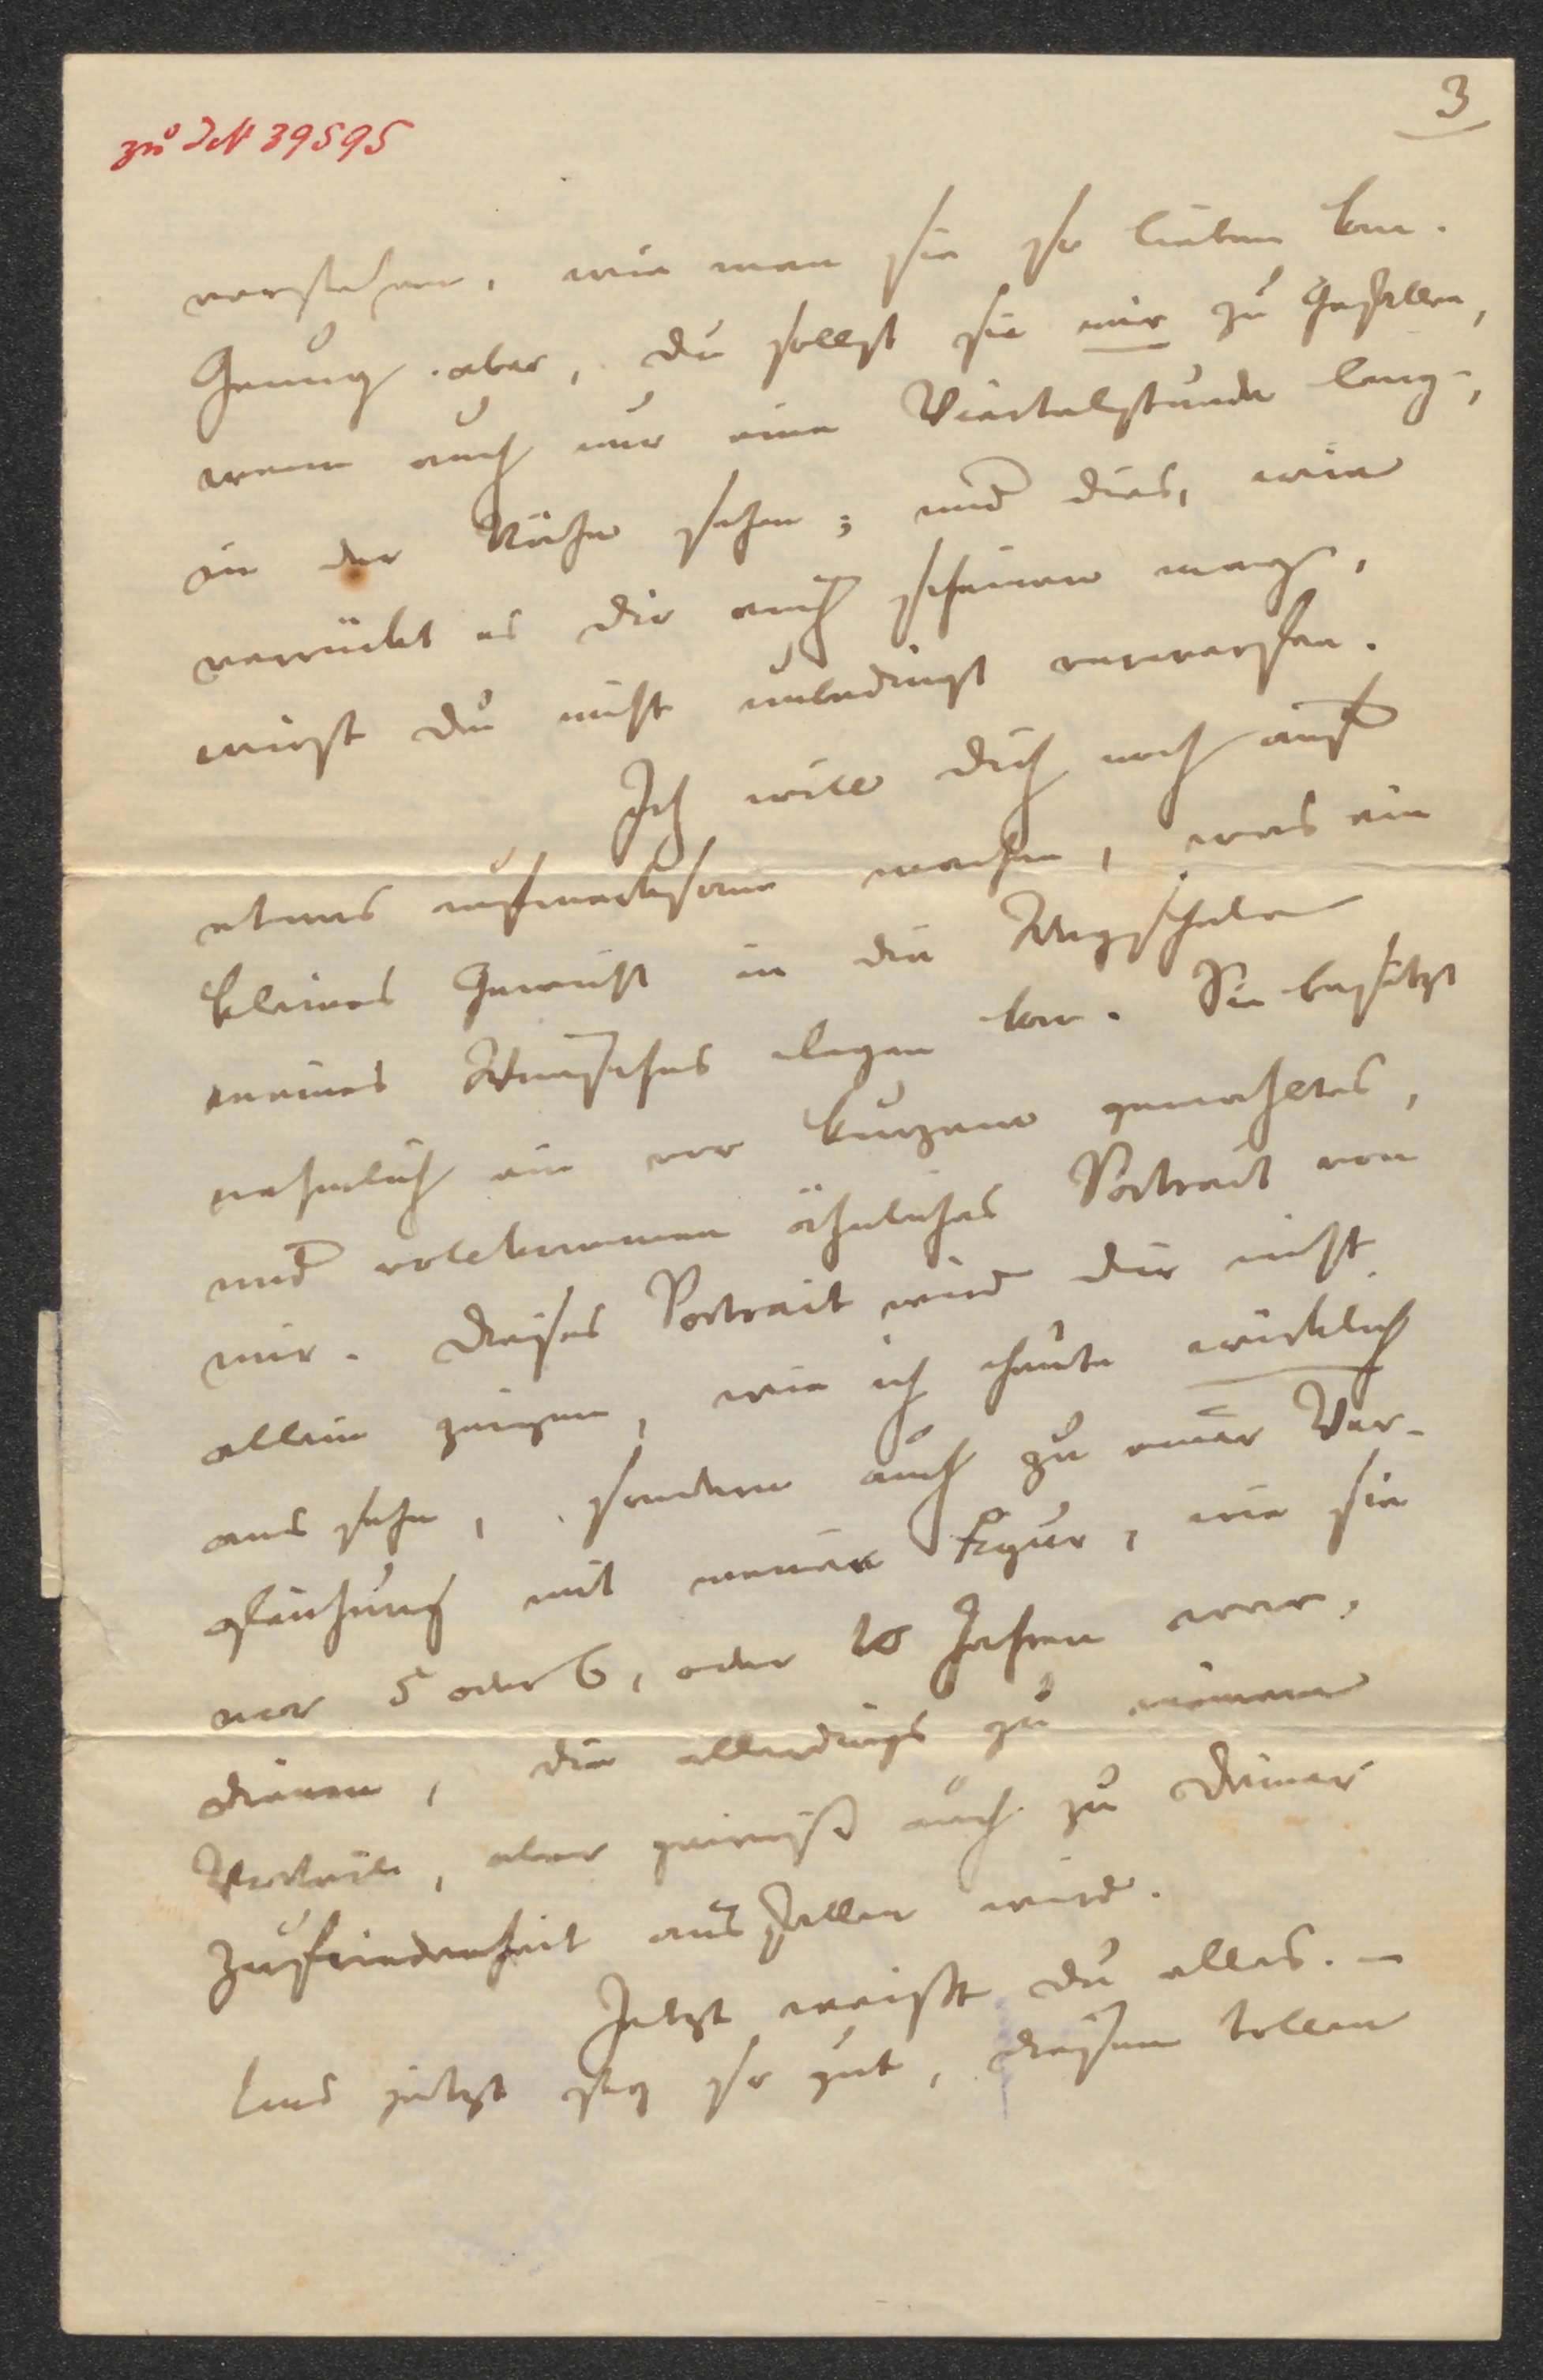 3
zu IN 39595
verstehen, wie man sie so lieben kan.
Genug aber, du sollst sie mir zu Gefallen,
wenn auch nur eine Viertelstunde lang,
in der Nähe sehen; und dies, wie
verrückt es dir auch scheinen mag,
wirst du nicht unbedingt verwerfen.
Ich will dich noch auf
etwas aufmerksam machen, was ein
kleines Gewicht in die Wagschale
meines Wunsches legen kan. Sie besitzt
nehmlich ein vor kurzem gemahltes,
und vollkommen ähnliches Portrait von
mir. Dieses Portrait wird dir nicht
allein zeigen, wie ich heute wirklich
aus sehe, sondern auch zu einer Ver-
gleichung mit meiner Figur, wie sie
vor 5 oder 6, oder 10 Jahren war,
dienen, die allerdings zu meinem
Vorteil, aber gewiß auch zu deiner
Zufriedenheit ausfallen wird.
Jetzt weißt du alles. –
Und jetzt sey so gut, diesen tollen